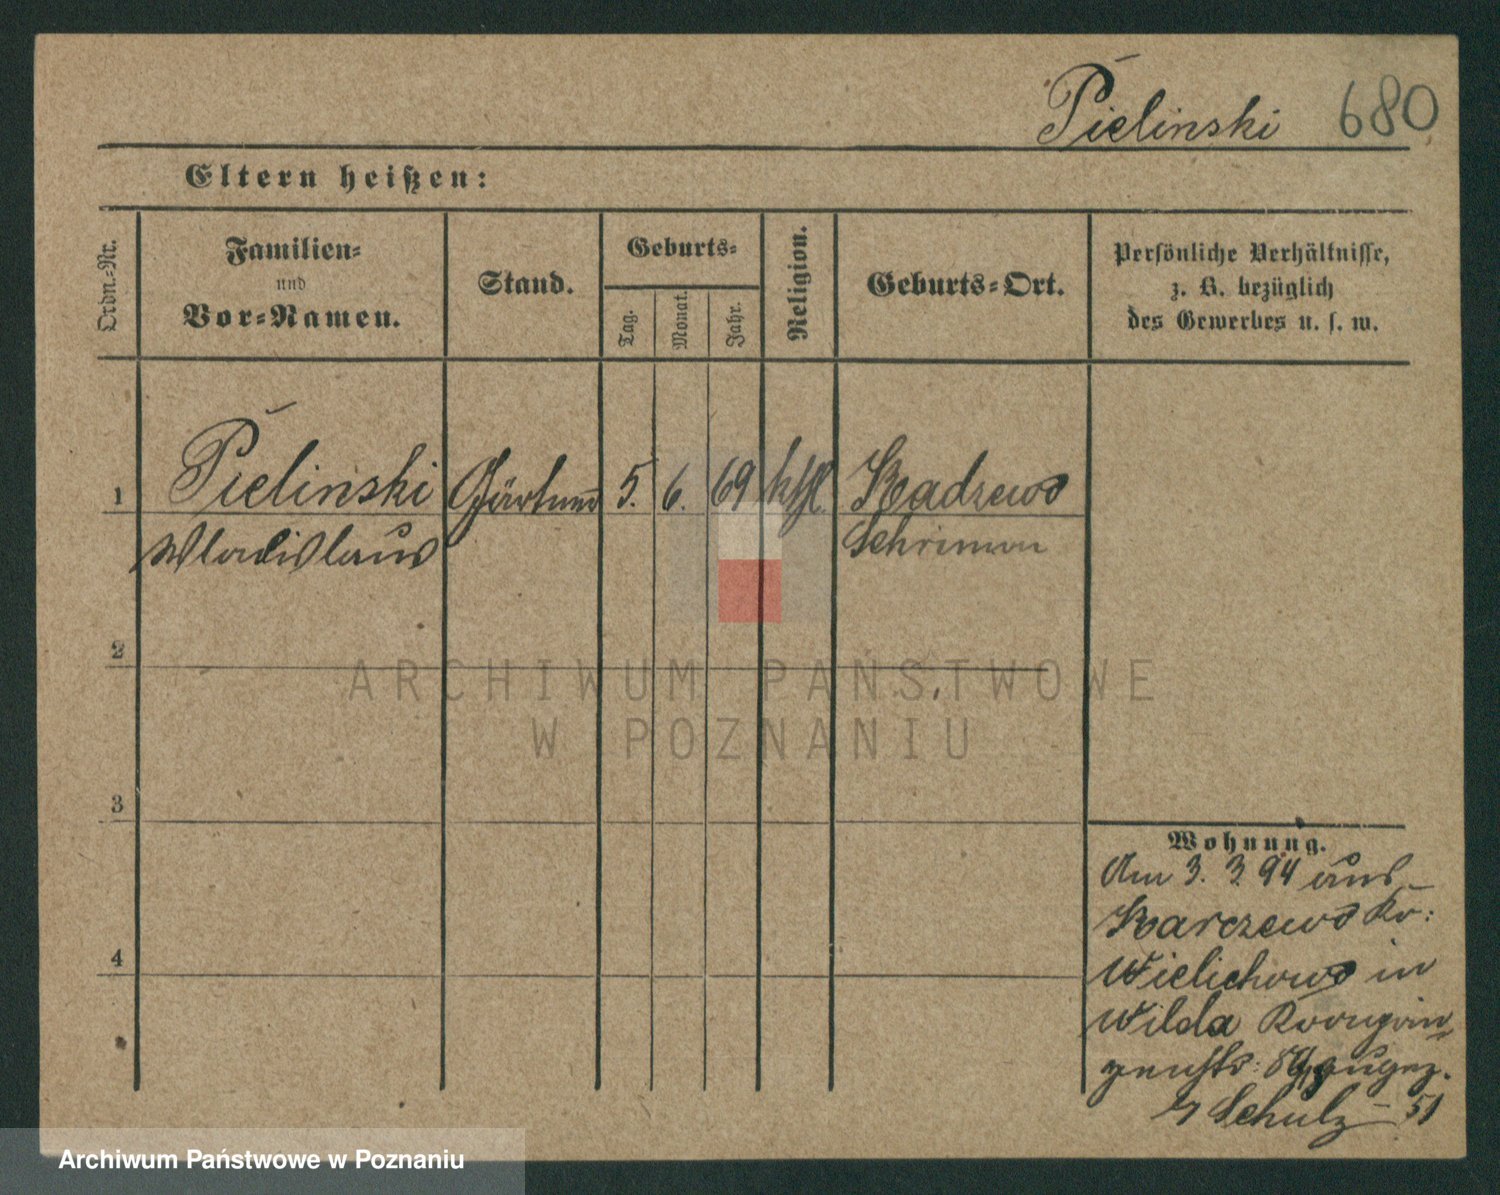 Pielinski 680
Eltern heißen:
Ordn.-Nr.
Familien-
und
Vor-Namen.
Stand.
Geburts-
Tag.
Monat.
Jahr.
Religion.
Geburts-Ort.
Persönliche Verhältnisse,
z. B. bezüglich
des Gewerbes u. s. w.
1 Pielinski Gärtner 5. 6. 69 kthl. Radzewo
Wladislaus Schrimm
2
3
4
Wohnung.
Am 3. 3. 94 aus
Karczewo Kr:
Wielichowo in
Wilda
zugez.
Schulz 51
ARCHIWUM PAŃSTWOWE
W POZNANIU
Archiwum Państwowe w Poznaniu